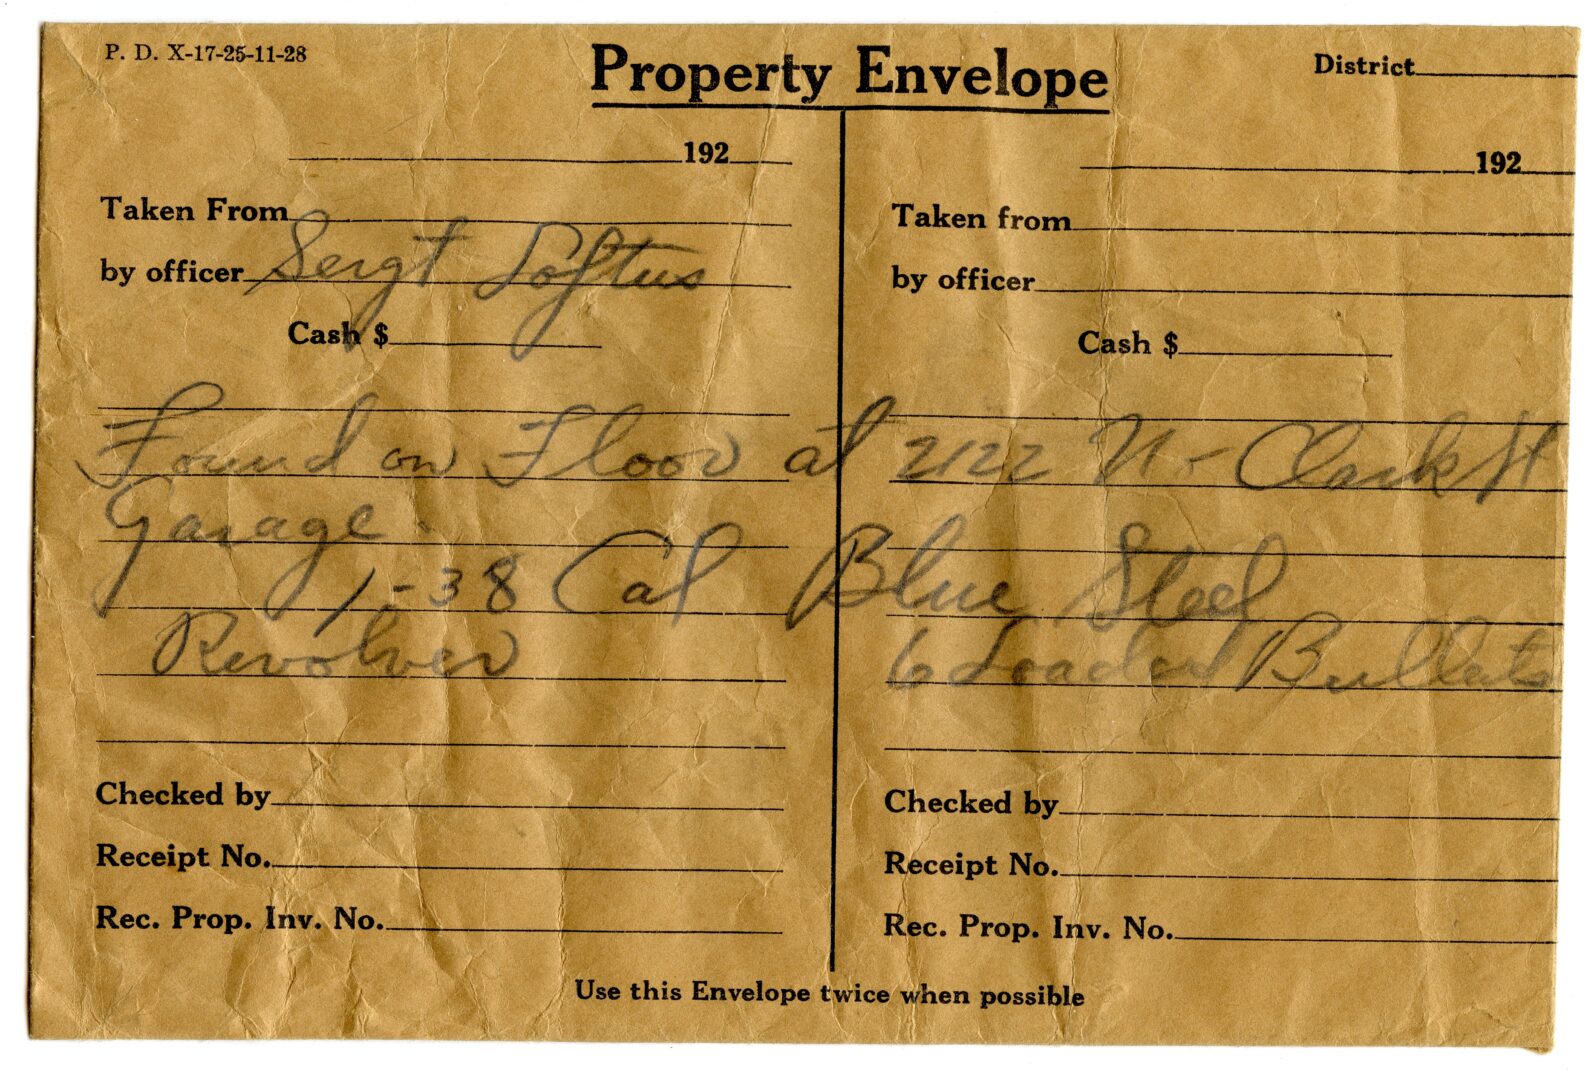 P. D. X-17-25-11-28
Property Envelope
District
192
Taken From
by officer Sergt Loftus
Cash $
192
Taken from
by officer
Cash $
Found on Floor at 2122 N- Clark St
Garage.
1-38 Cal Blue Steel
Revolver 6 Loaded Bullets
Checked by
Receipt No.
Rec. Prop. Inv. No.
Checked by
Receipt No.
Rec. Prop. Inv. No.
Use this Envelope twice when possible